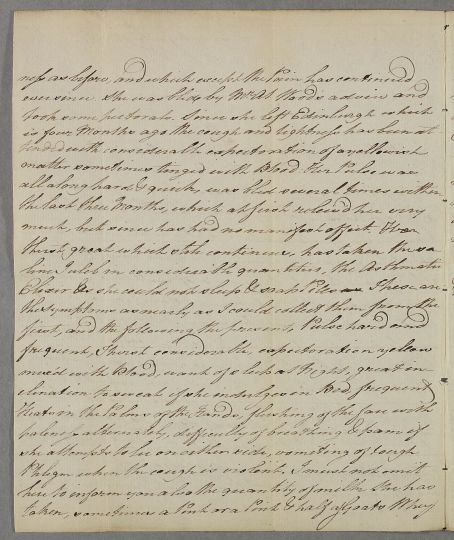 ness as before, and which except the Pain has continued
ever since. She was bled by Mr At Wood's advice and
took some pectorals. Since she left Edinburgh which
is four Months ago the cough and tightness has been at
tended with considerable expectoration of a yellowish
matter sometimes tinged with Blood. Her Pulse was
all along hard & quick, was bled several times within
the last three Months, which at first relieved her very
much, but since has had no manifest effect. Her
thirst great which still continues, has taken the sa
line Julep in considerable quantities, the Asthmatic
Elixir as she could not sleep & some Pills. These are
the symptoms as nearly as I could collect them from the
first, and the following the present, Pulse hard and
frequent, Thirst considerable, expectoration yellow
mixed with Blood, want of sleep at Night, great in
clination to sweat if she indulges in Bed, frequent
Heats in the Palms of the Hands, flushing of the face with
paleness alternately, difficulty of breathing & pain if
she attempts to lie on either side, vomiting of tough
Phlegm when the cough is violent. I must not omit
here to inform you also the quantity of milk she has
taken, sometimes a Pint or a Pint & half of Goats Whey